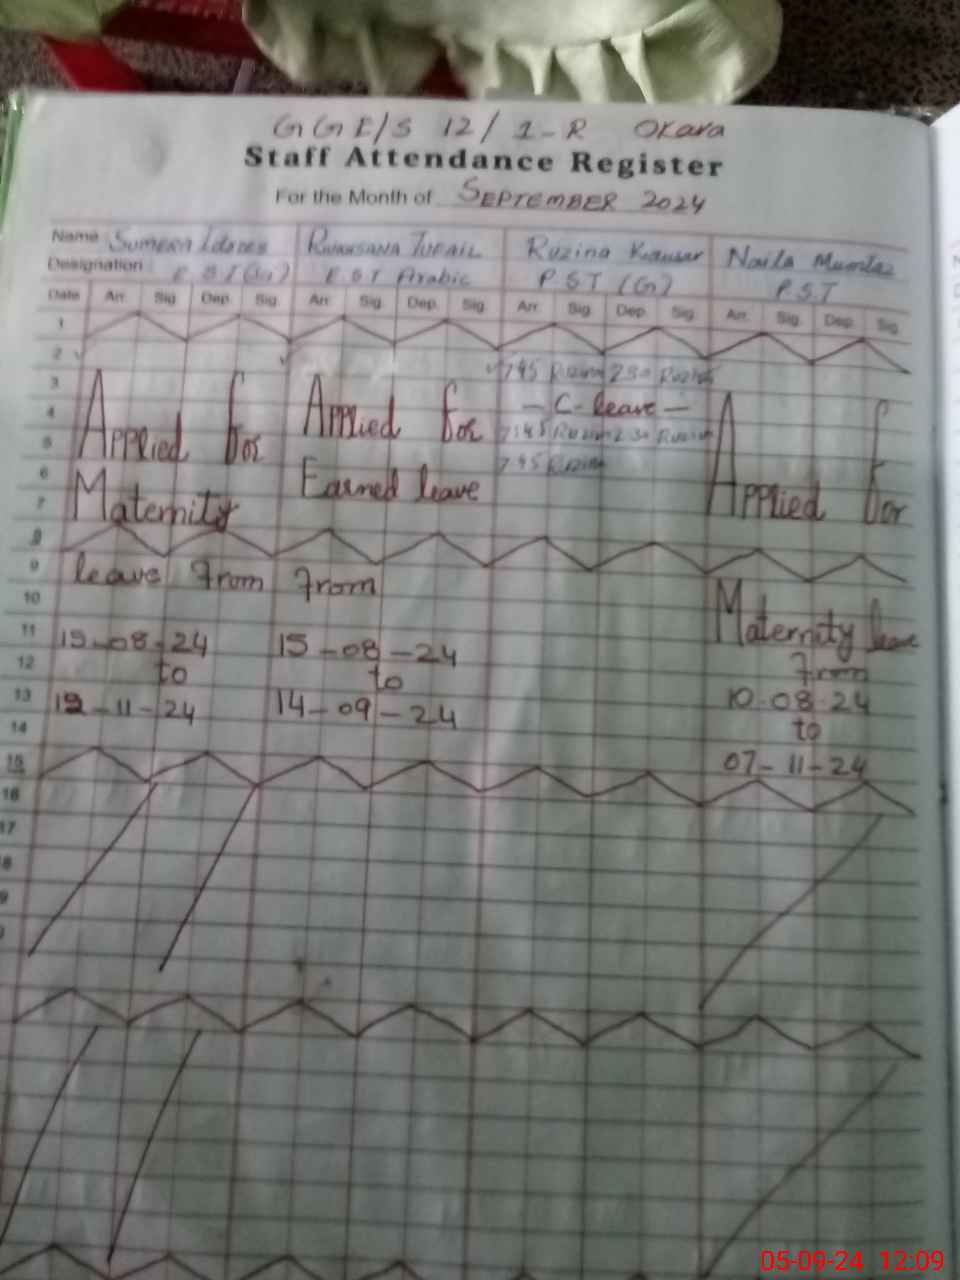 GGE/S 12/1-R Okara
Staff Attendance Register
For the Month of SEPTEMBER 2024
Name Sumera Rukhsana Tufail Ruzina Kausar Naila Mumtaz
Designation E.S.T (G) E.S.T Arabic P.S.T (G) P.S.T
Date Arr. Sig. Dep. Sig. Arr. Sig. Dep. Sig. Arr. Sig. Dep. Sig. Arr. Sig. Dep. Sig.
1
2 7:45 Ruzina 2:30 Ruzina
3 - C- leave -
4 7:45 Ruzina 2:30 Ruzina
5 7:45 Ruzina
6
7
8
9
10
11
12
13
14
15
16
17
Applied for
Maternity
leave from
15-08-24
to
-11-24
Applied for
Earned leave
from
15-08-24
to
14-09-24
Applied for
Maternity leave
from
10-08-24
to
07-11-24
05-09-24 12:09